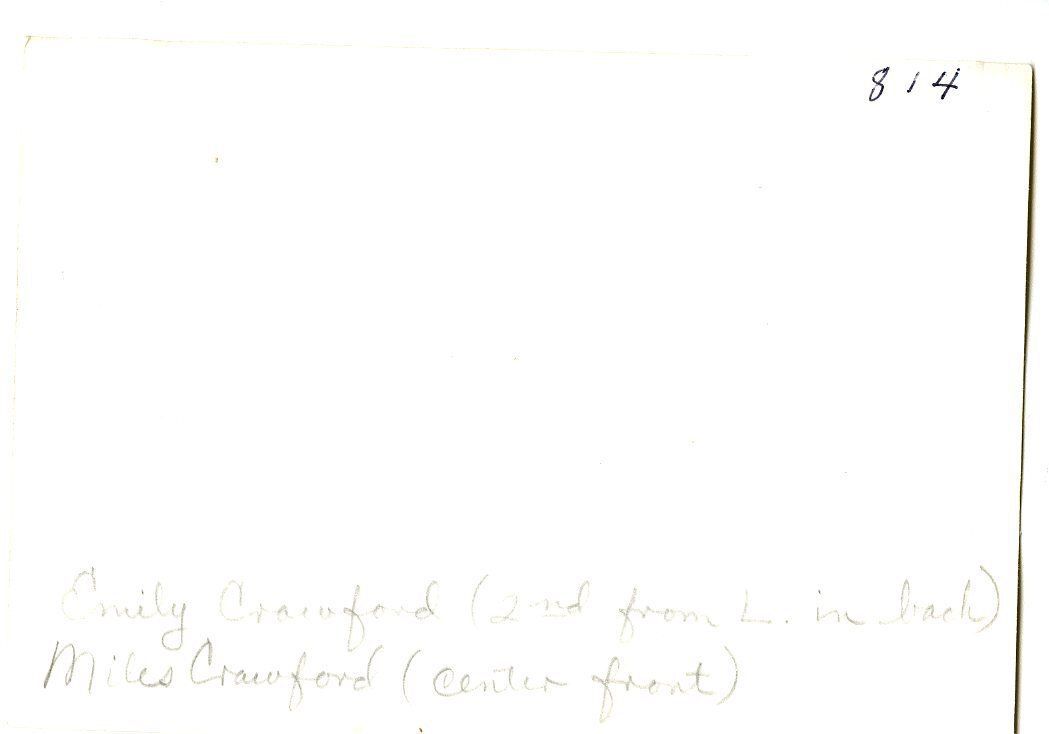 814
Emily Crawford (2nd from L. in back)
Miles Crawford (center front)